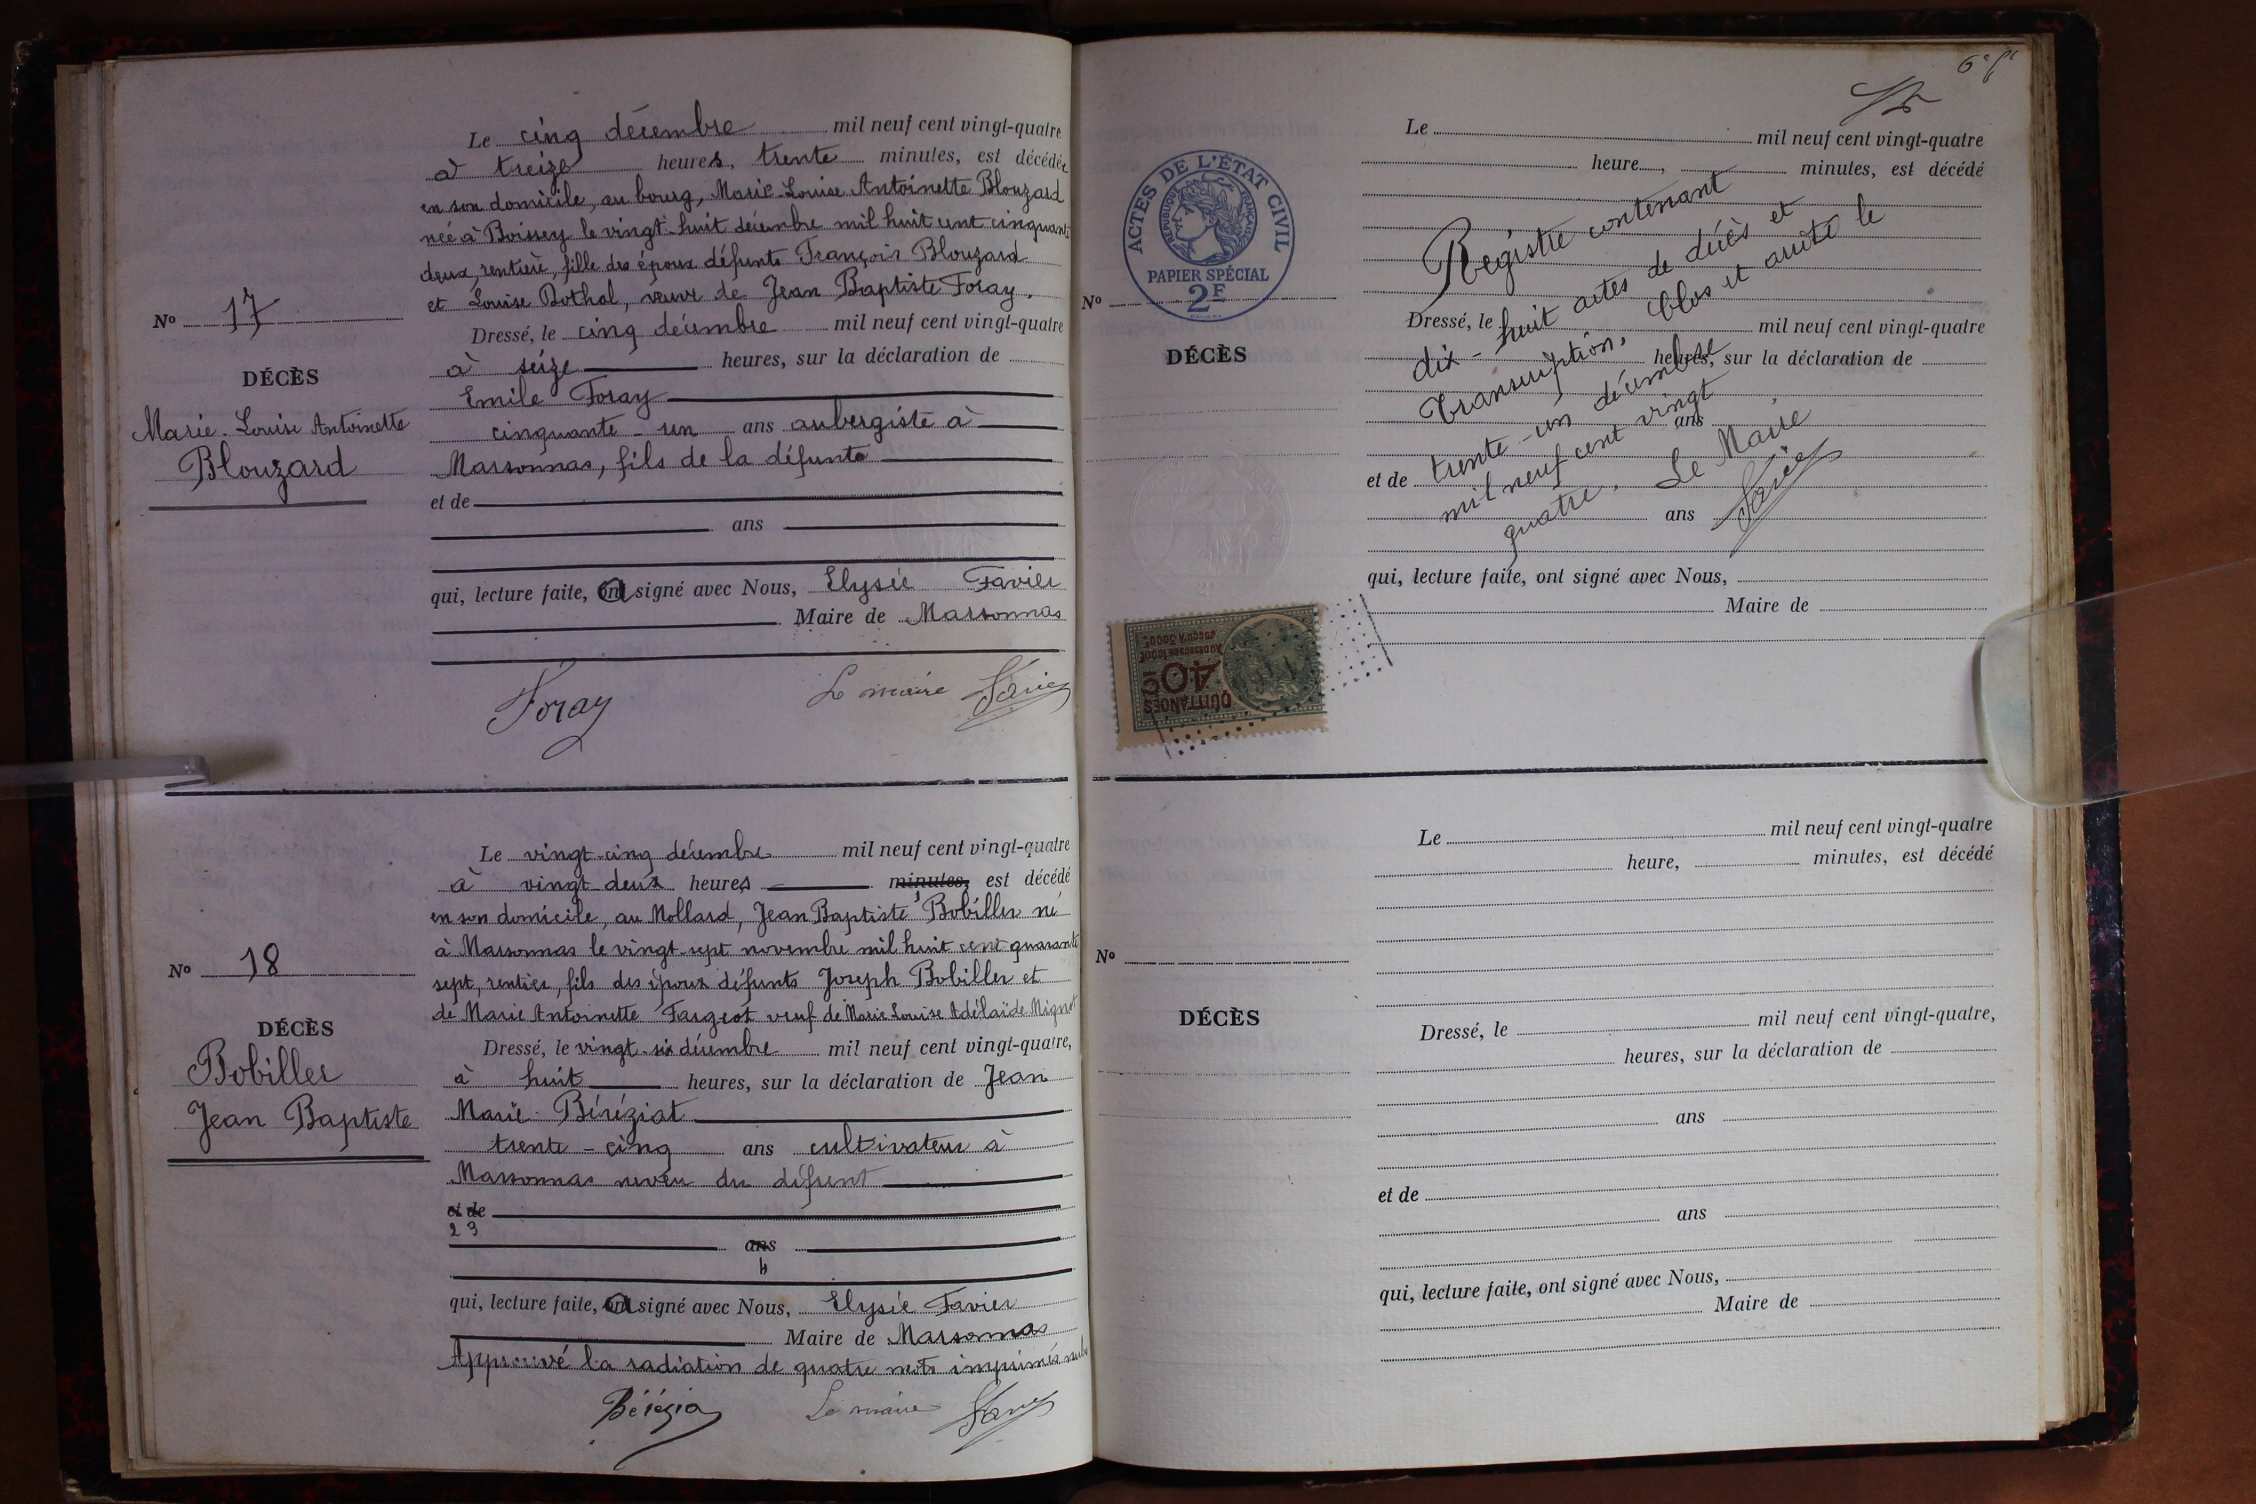 Le cinq décembre mil neuf cent vingt-quatre
à treize heures, trente minutes, est décédée
en son domicile, au bourg, Marie-Louise Antoinette Blouzard
née à Boissey le vingt-huit décembre mil huit cent cinquante
deux, rentière, fille des époux défunts François Blouzard
et Louise Bothal, veuve de Jean Baptiste Foray.
No 17
DÉCÈS
Marie-Louise Antoinette
Blouzard
Dressé, le cinq décembre mil neuf cent vingt-quatre
à seize heures, sur la déclaration de
Emile Foray
cinquante-un ans aubergiste à
Marsonnas, fils de la défunte
et de
ans
qui, lecture faite, a signé avec Nous, Elysée Favier
Maire de Marsonnas
Foray Le maire Favier
Le vingt-cinq décembre mil neuf cent vingt-quatre
à vingt deux heures minutes, est décédé
en son domicile, au Mollard, Jean Baptiste Bobiller né
à Marsonnas le vingt-sept novembre mil huit cent quarante
sept, rentier, fils des époux défunts Joseph Bobiller et
de Marie Antoinette Fargeot veuf de Marie Louise Adélaïde Mignot
No 18
DÉCÈS
Bobiller
Jean Baptiste
Dressé, le vingt-six décembre mil neuf cent vingt-quatre,
à huit heures, sur la déclaration de Jean
Marie Béréziat
trente-cinq ans cultivateur à
Marsonnas neveu du défunt
et de
2 3
ans
4
qui, lecture faite, a signé avec Nous, Elysée Favier
Maire de Marsonnas
Approuvé la radiation de quatre mots imprimés nuls
Béréziat Le maire Favier
6e
Le mil neuf cent vingt-quatre
heure, minutes, est décédé
ACTES DE L'ÉTAT CIVIL
RÉPUBLIQUE FRANÇAISE
PAPIER SPÉCIAL
2F
No
DÉCÈS
Registre contenant
dix-huit actes de décès et
transcription. Clos et arrêté le
trente-un décembre
mil neuf cent vingt
quatre. Le Maire
Favier
Dressé, le mil neuf cent vingt-quatre
heures, sur la déclaration de
ans
et de
ans
qui, lecture faite, ont signé avec Nous,
Maire de
QUITTANCES
40c
Le mil neuf cent vingt-quatre
heure, minutes, est décédé
No
DÉCÈS
Dressé, le mil neuf cent vingt-quatre,
heures, sur la déclaration de
ans
et de
ans
qui, lecture faite, ont signé avec Nous,
Maire de